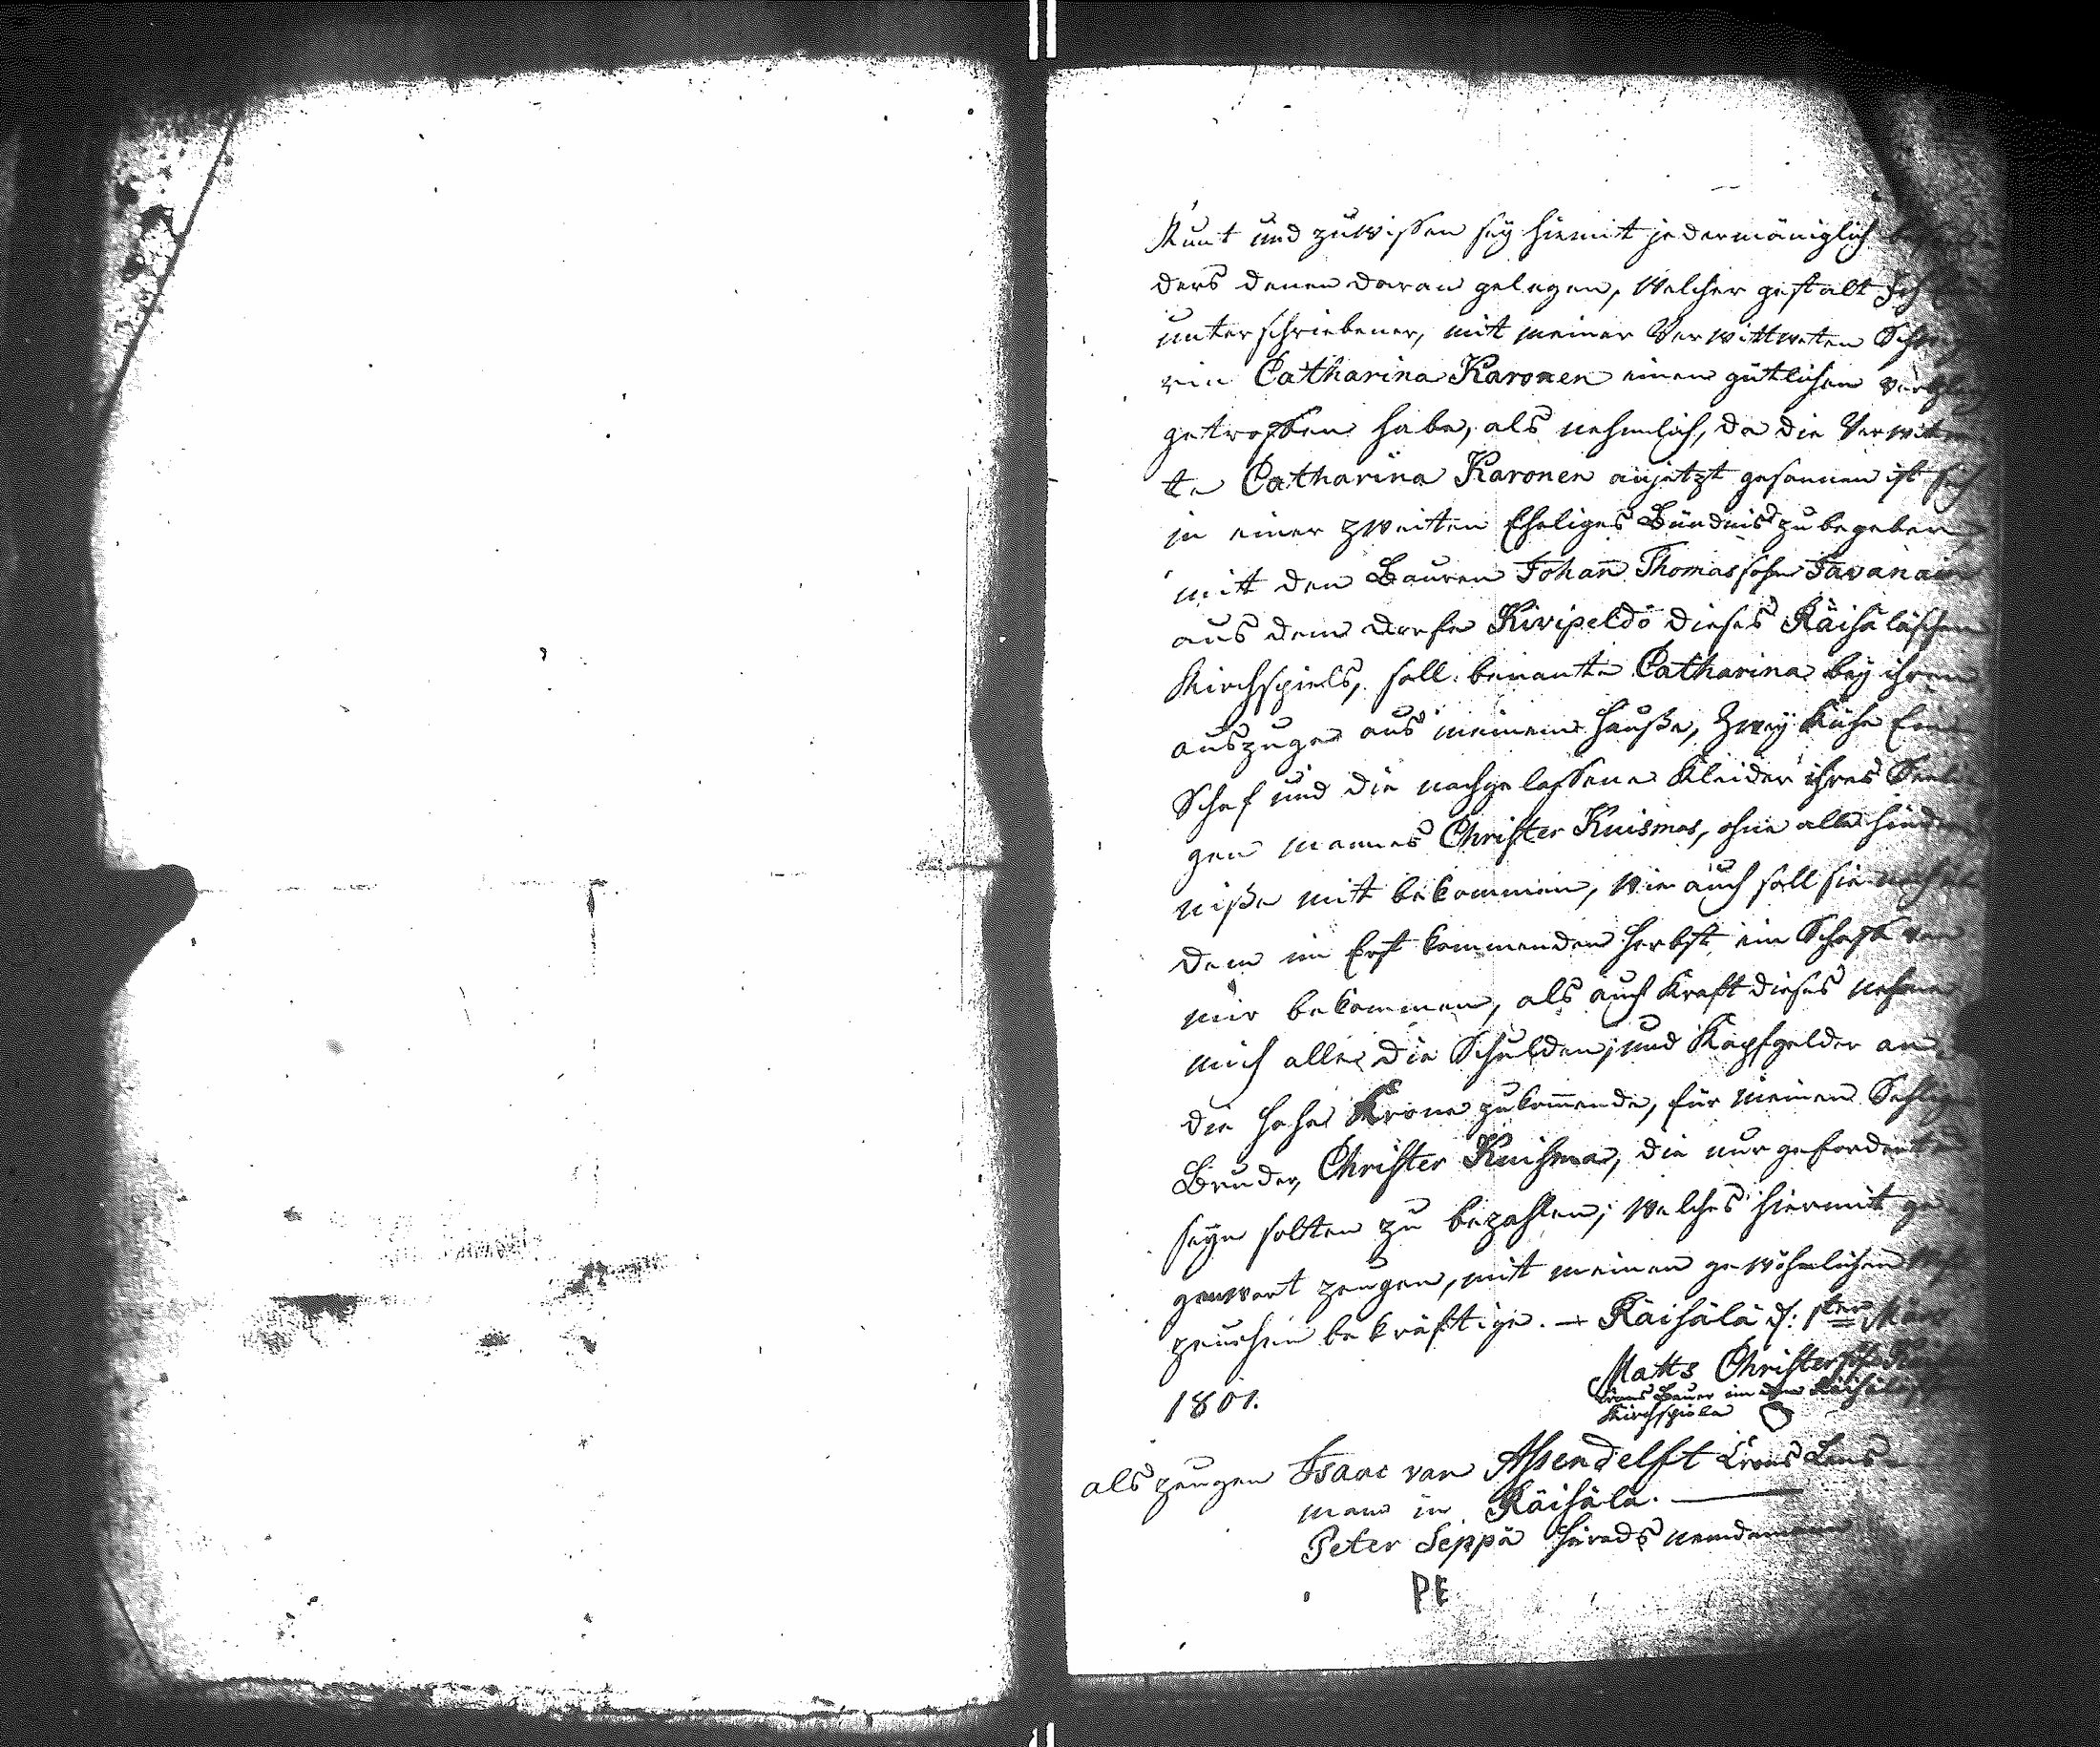 Kunt und zuwissen seÿ hiemit jedermäniglich
ders denen daran gelegen, Welcher gestalt Ich
unterschriebener, mit meiner Verwittweten
rin Catharina Karonen einen gütlichen
getroffen habe, als nehmlich, da die
te Catharina Karonen anjetzt gesonnen ist sich
in einer zweiten Eheliges Bündnis zu begeben
mitt den Bauren Johan̄ Thomassohn Tavanain
aus dem dorfe Kivipeldo dieses Räisäläschen
Kirchspiels, soll benante Catharina beÿ ihren
auszuge aus meinem Hauße, Zweÿ Kühe Ein
Schaf und die nachgelassene Kleider ihres Seeli
gen mannes Christer Kuismas, ohne alle hinder
niße mit bekommen, Wie auch soll sie
dem im Erst kommenden Herbst ein Schaft von
mir bekommen, als auch Kraft dieses nehme
mich alle die Schulden, und Kopfgelder an
die hohe Krone zukom̄ende, für meinen Sehligen
Bruder, Christer Kuisma, die nur gefordert
seÿn solten zu bezahlen; Welches hiermit ge
genwart zeugen, mit meinen gewöhnlichen
zeuchen bekräftige. — Räisälä d: 1ten März
1801.
Matts Christersohn
Crons Bauer im dem Räisäläschen
Kirchspiele
als zeugen Isaac van Assendelft Crons Lens
man in Räisälä. —
Peter Seppä Härads nemdeman
PE